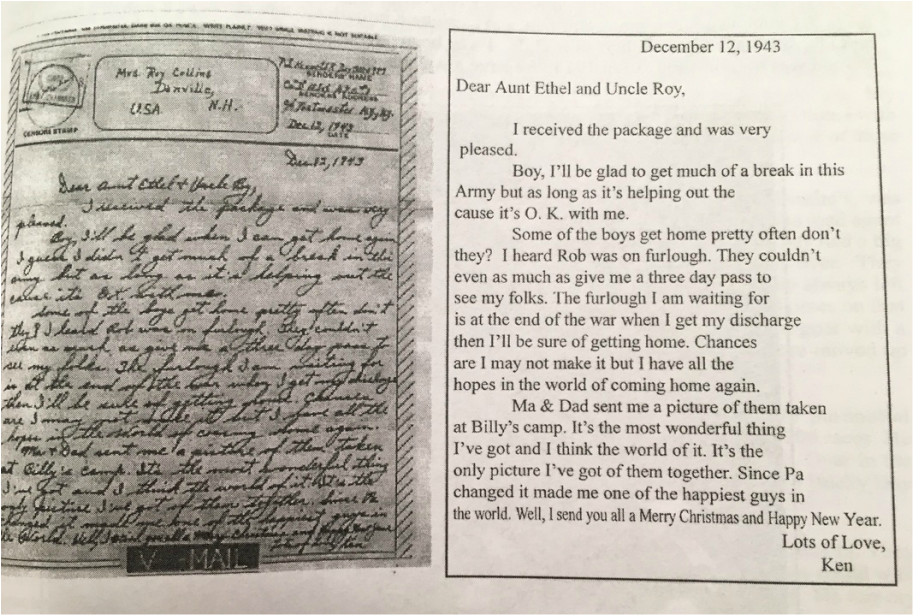 Mrs. Roy Collins
Danville,
USA N.H.
SENDER'S NAME
SENDER'S ADDRESS
Dec 12, 1943
DATE
CENSORS STAMP
Dec. 12, 1943
Dear Aunt Ethel & Uncle Roy,
I received the package and was very
pleased.
Boy, I'll be glad when I can get home again
I guess I didn't get much of a break in this
army but as long as it's helping out the
cause its O.K. with me.
Some of the boys get home pretty often don't
they? I heard Rob was on furlough. They couldn't
even as much as give me a three day pass to
see my folks. The furlough I am waiting for
is at the end of the war when I get my discharge
then I'll be sure of getting home. Chances
are I may not make it but I have all the
hopes in the world of coming home again.
Ma & Dad sent me a picture of them taken
at Billy's camp. It's the most wonderful thing
I've got and I think the world of it. It's the
only picture I've got of them together. Since Pa
changed it made me one of the happiest guys in
the world. Well, I send you all a Merry Christmas and
V - MAIL
December 12, 1943
Dear Aunt Ethel and Uncle Roy,
I received the package and was very
pleased.
Boy, I'll be glad to get much of a break in this
Army but as long as it's helping out the
cause it's O. K. with me.
Some of the boys get home pretty often don't
they? I heard Rob was on furlough. They couldn't
even as much as give me a three day pass to
see my folks. The furlough I am waiting for
is at the end of the war when I get my discharge
then I'll be sure of getting home. Chances
are I may not make it but I have all the
hopes in the world of coming home again.
Ma & Dad sent me a picture of them taken
at Billy's camp. It's the most wonderful thing
I've got and I think the world of it. It's the
only picture I've got of them together. Since Pa
changed it made me one of the happiest guys in
the world. Well, I send you all a Merry Christmas and Happy New Year.
Lots of Love,
Ken